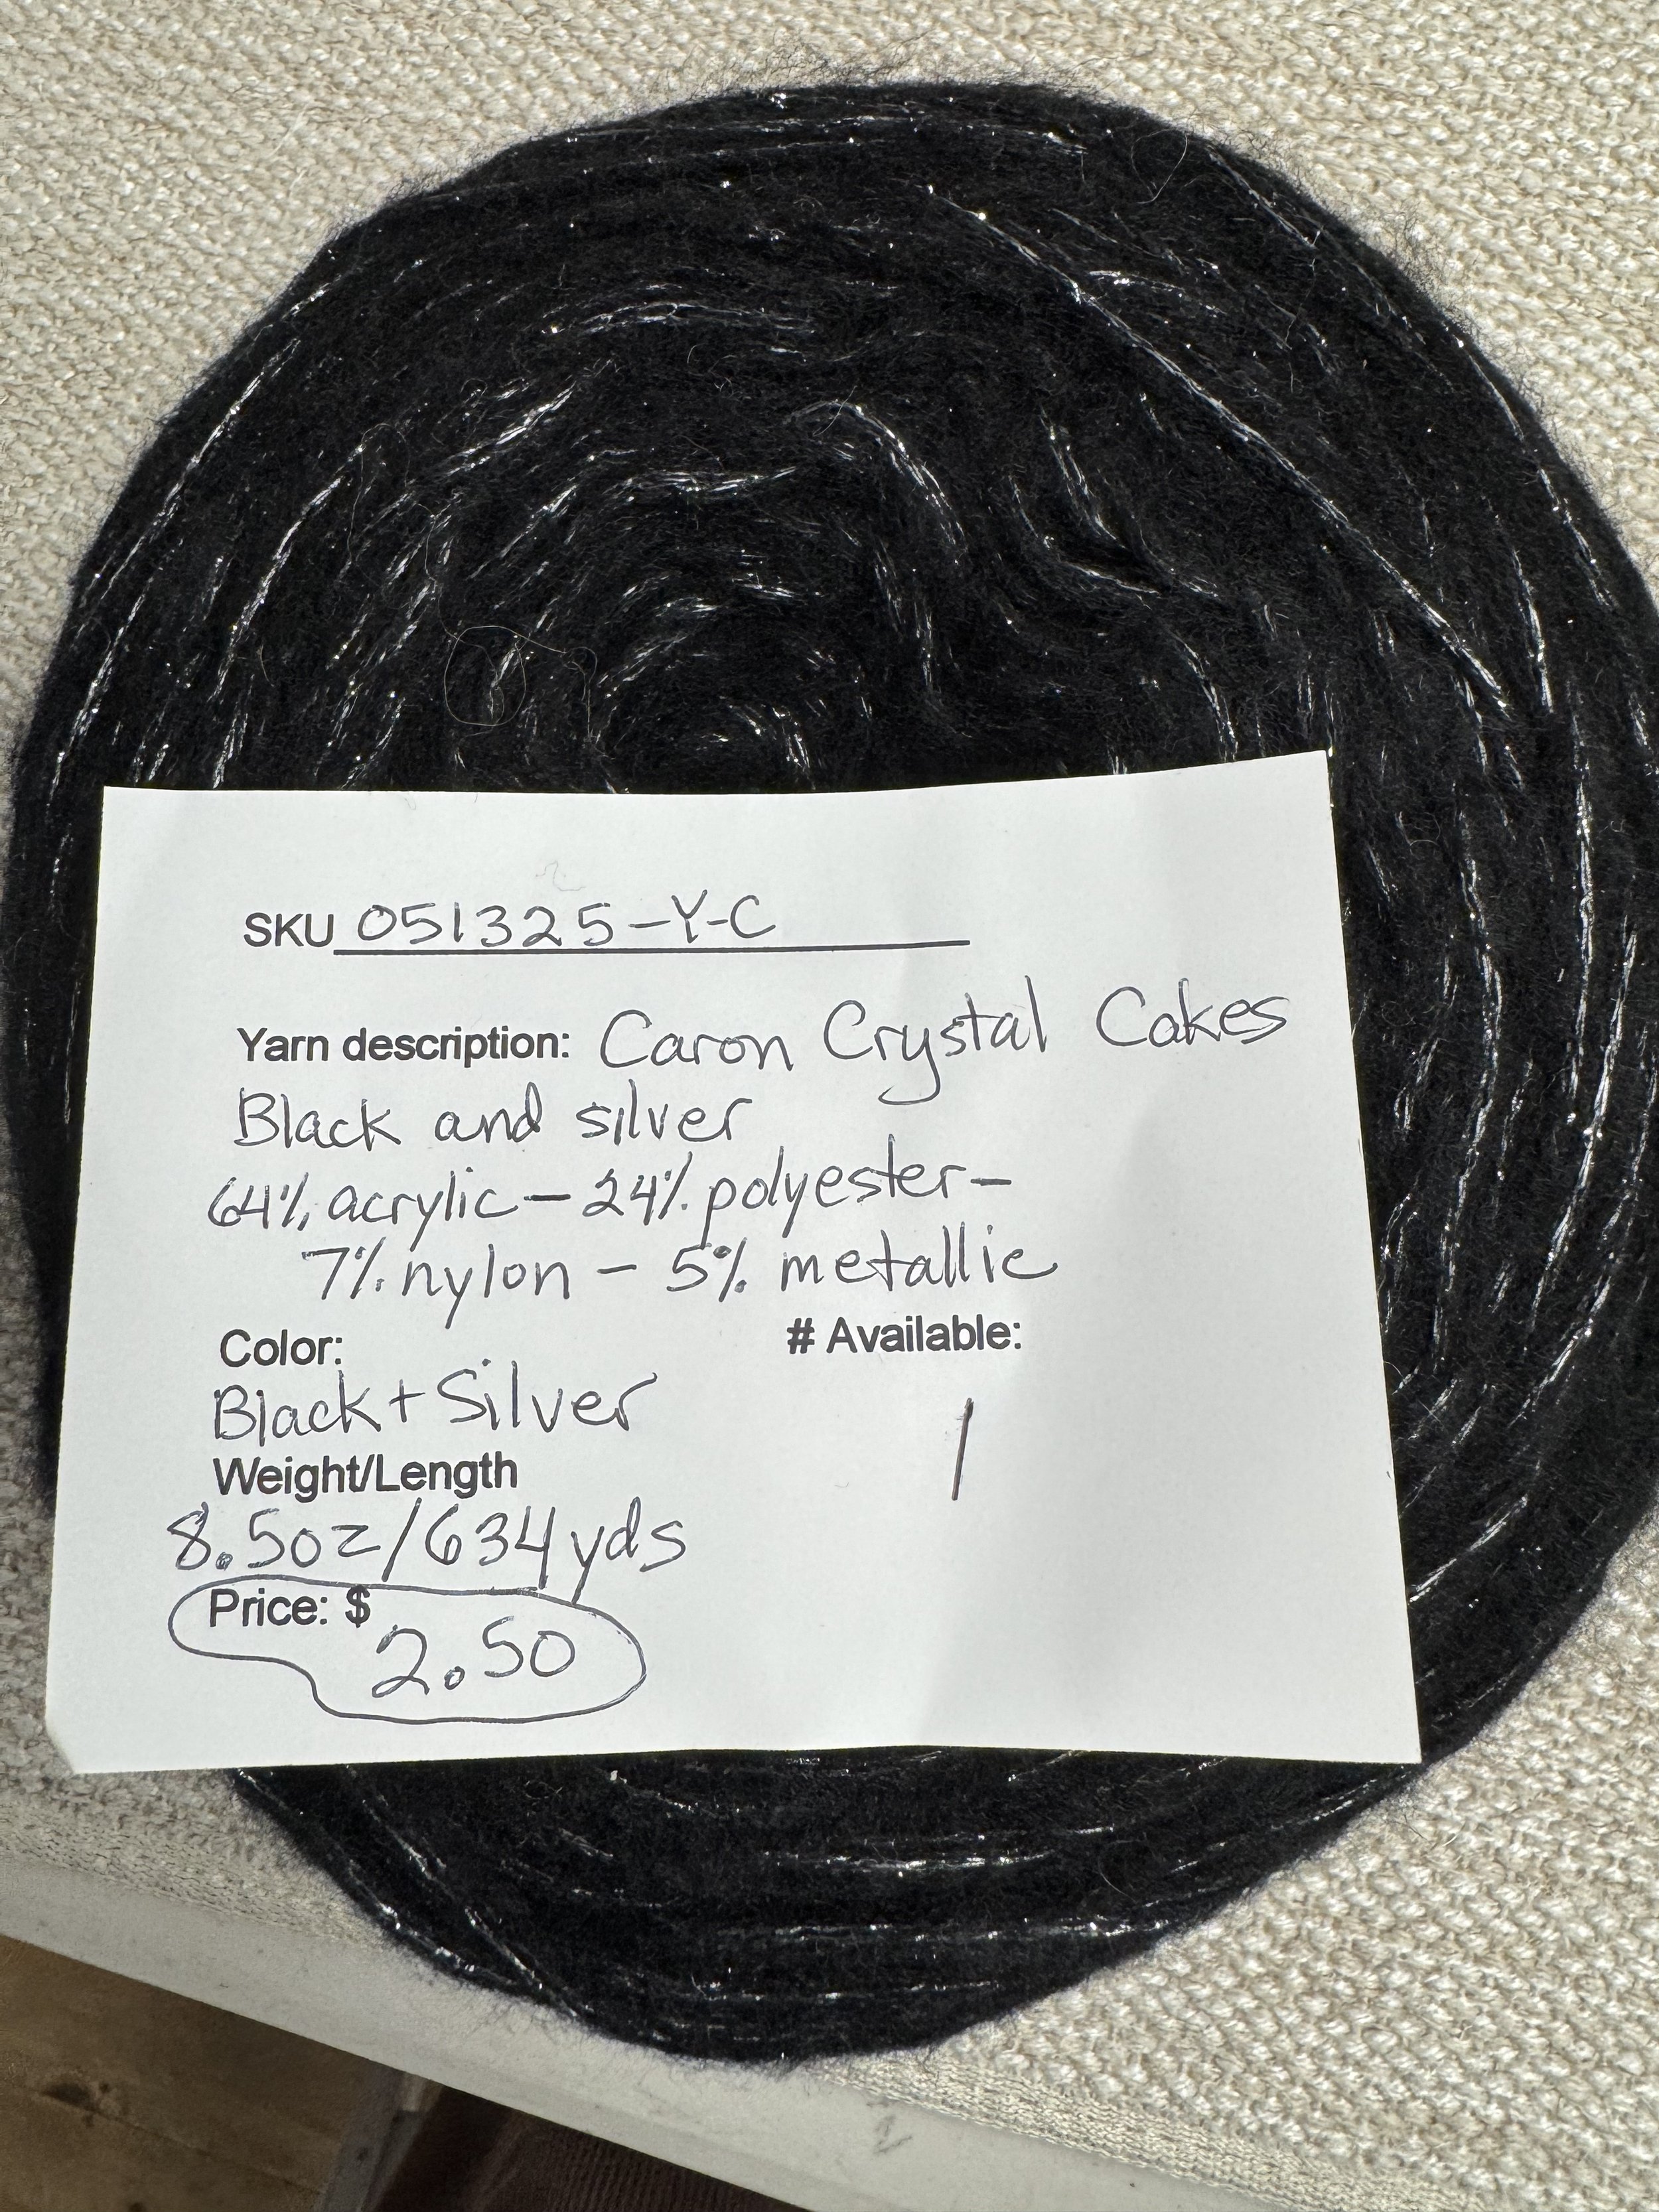 SKU 051325-Y-C
Yarn description: Caron Crystal Cakes
Black and silver
64% acrylic - 24% polyester -
7% nylon - 5% metallic
Color: # Available:
Black + Silver 1
Weight/Length
8.5oz/634yds
Price: $ 2.50